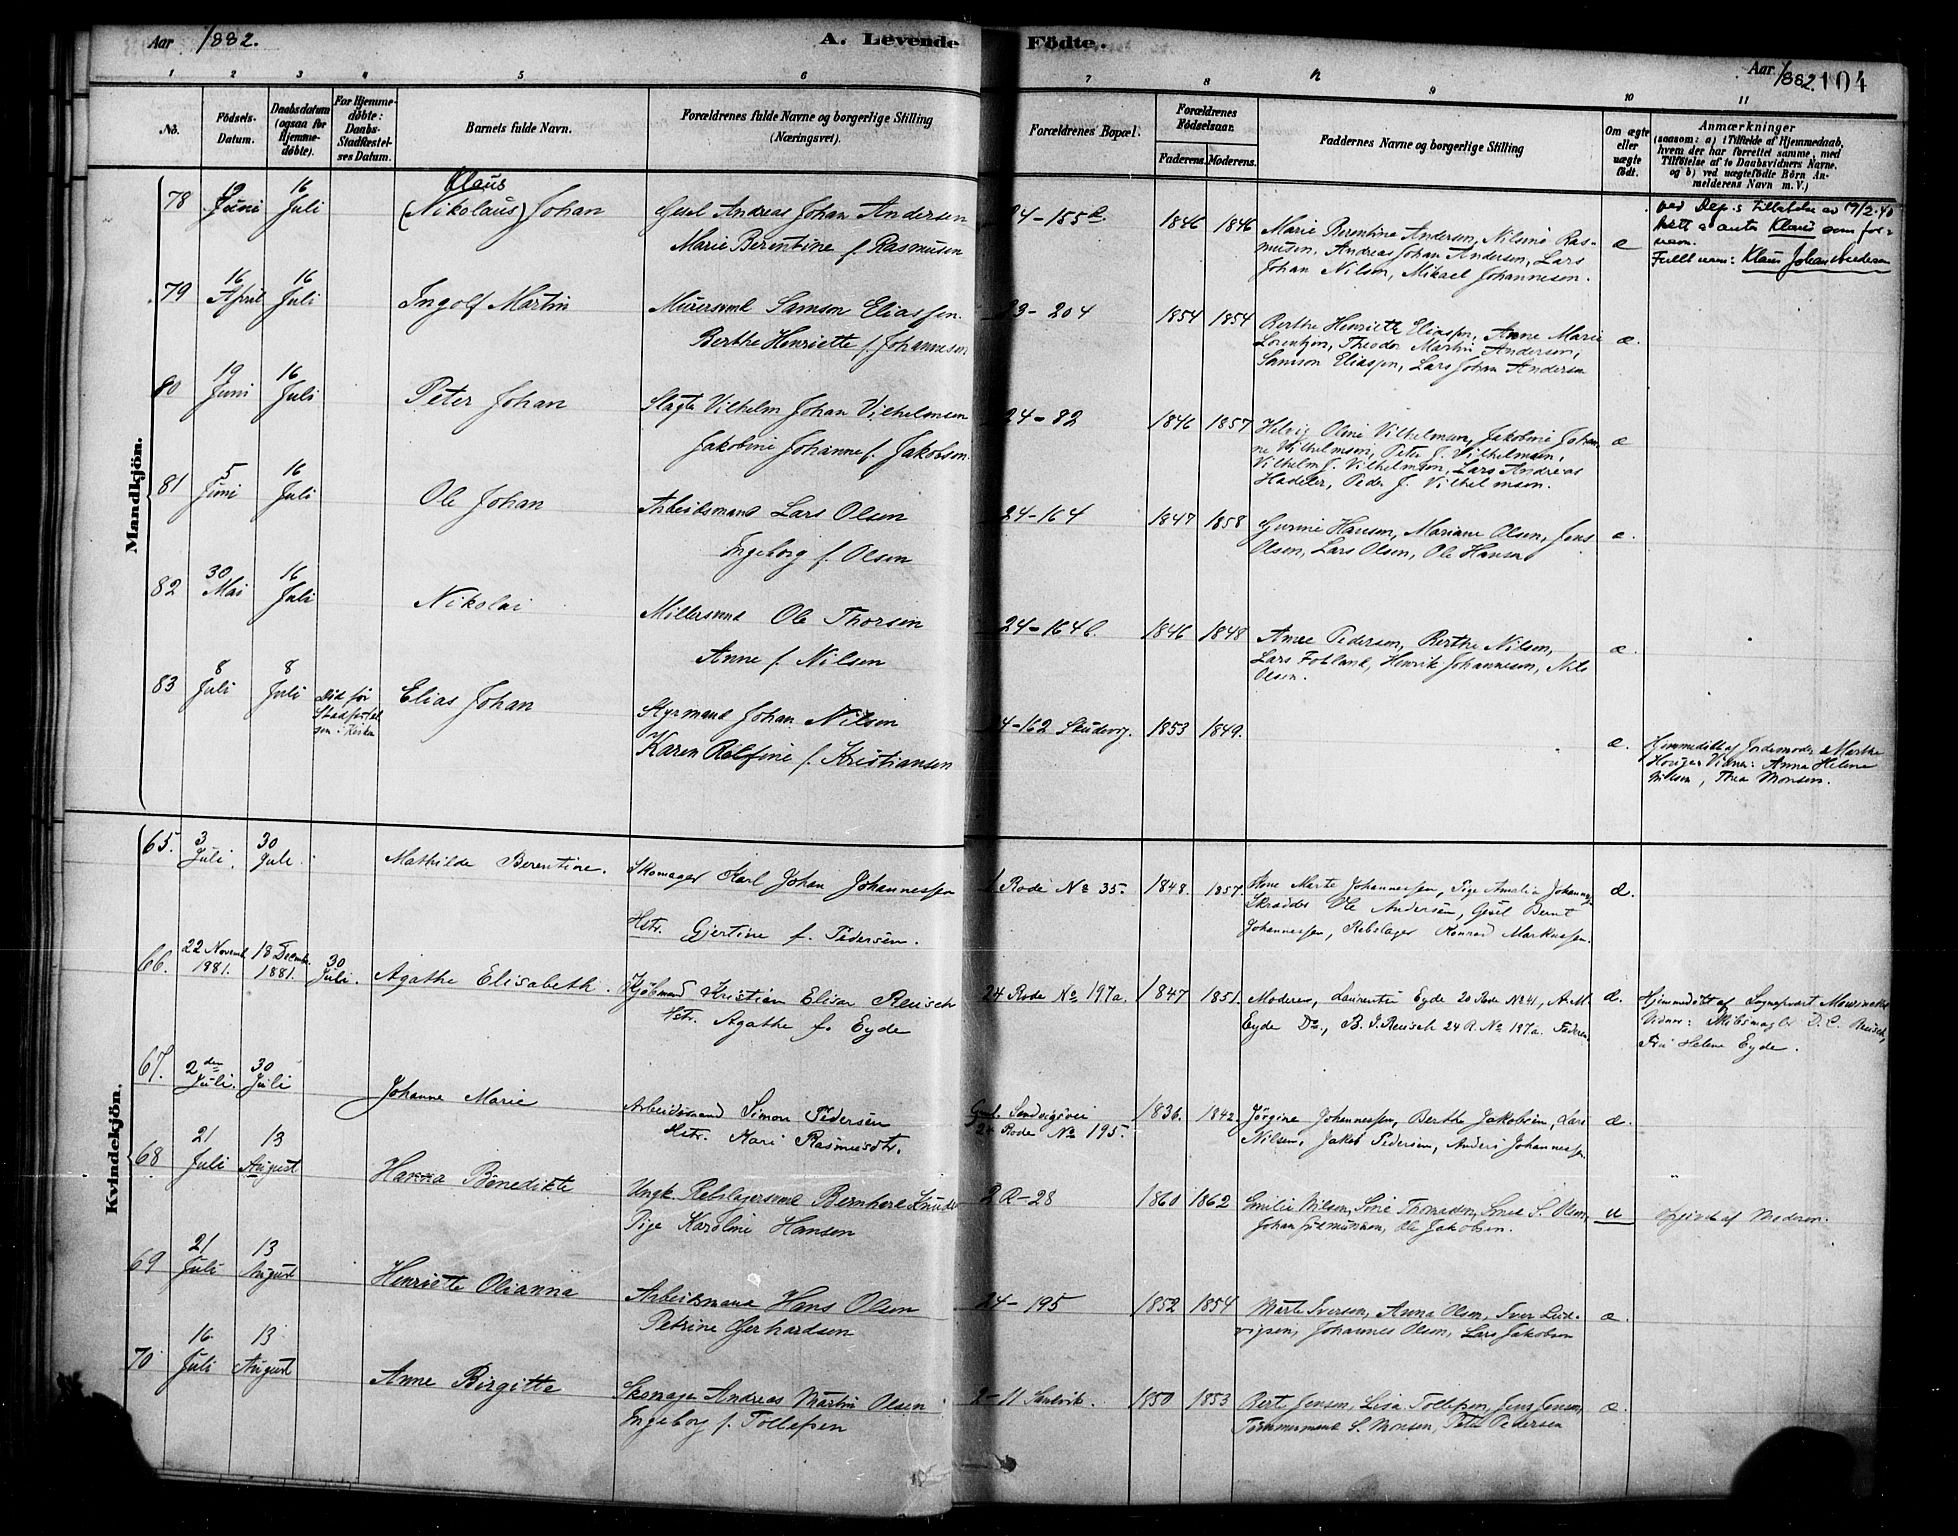 Aar 1882. A. Levende Födte. Aar 1882. 104
1 2 3 4 5 6 7 8 9 10 11
No.
Födsels-Datum.
Daabsdatum (ogsaa for Hjemmedøbte).
For Hjemmedøbte: Daabs-Stadfæstelses Datum.
Barnets fulde Navn.
Forældrenes fulde Navne og borgerlige Stilling (Næringsvei).
Forældrenes Bopæl.
Forældrenes Födselsaar.
Faderens. Moderens.
Faddernes Navne og borgerlige Stilling
Om ægte eller uægte födt.
Anmærkninger
(saasom: a) i Tilfælde af Hjemmedaab, hvem der har forrettet samme, med Tilföielse af to Daabsvidners Navne. og b) ved uægtefödte Börn Anmelderens Navn m. V.)
Mandkjön.
78 Juni 16 Juli Klaus (Nikolaus) Johan
Andreas Johan Andersen
Marie Berentine f. Rasmusen
1846 1846
Marie Berentine Andersen, Nilsine Rasmusen, Andreas Johan Andersen, Lars
Johan Nilsen, Mikael Johannesen.
æ
ved Dep.s tillatelse av 19/2-40
rett å anta Klaus som fornavn.
Fullt navn: Klaus Johan Andersen
79 16 April 16 Juli Ingolf Martin
Murersvend Samson Eliassen
Berthe Henriette f. Johannesen
23-204 1854 1854
Berthe Henriette Eliassen, Anne Marie
Lorentzen, Theodor Martin Andersen,
Samson Eliassen, Lars Johan Andersen
æ.
80 19 Juni 16 Juli Peter Johan
Slagter Vilhelm Johan Vilhelmsen
Jakobine Johanne f. Jakobsen.
24-82 1846 1857
Helvig Oline Vilhelmsen, Jakobine Johanne Vilhelmsen, Peter J. Vilhelmsen,
Vilhelm J. Vilhelmsen, Lars Andreas
Hadeler, Peder J. Vilhelmsen.
æ
81 5 Juni 16 Juli Ole Johan
Arbeidsmand Lars Olsen
Ingeborg f. Olsen
24-164 1847 1858
Gurine Hansen, Mariane Olsen, Jens
Olsen, Lars Olsen, Ole Hansen
æ.
82 30 Mai 16 Juli Nikolai
Møllersvend Ole Thorsen
Anne f. Nilsen
24-164b. 1846 1848
Anne Pedersen, Berthe Nilsen,
Lars Fobland, Henrik Johannesen, Nils
Olsen.
æ.
83 8 Juli 8 Juli Død før Stadfæstelsen i Kirken
Elias Johan
Styrmand Johan Nilsen
Karen f. Kristiansen
24-162 1853 1849.
æ.
Hjemmedøbt af Jordemoder Marthe
Vidner: Anna Helene
Nilsen, Thea Monsen.
Kvindekjön.
65. 3 Juli. 30 Juli Mathilde Berentine.
Skomager Karl Johan Johannessen
Hstr. Gjertine f. Pedersen.
1 Rode No 35. 1848. 1857.
Ane Marte Johannessen, Pige Amalia Johannes.
Skrædder Ole Andersen, Gesel Bernt
Johannessen, Rebslager Konrad Markussen.
æ.
66. 22 Novemb. 1881. 18 Decembr. 1881. 30 Juli. Agathe Elisabeth.
Kjøbmand Kristian Elisar Reusch
Hstr. Agathe f. Eyde
24 Rode No 197a. 1847 1851.
Moderen, Laurentse Eyde 20 Rode No 41, A. M.
Eyde Do., B. J. Reusch 24 R. No 197a. Faderen.
æ.
Hjemmedøbt af Sogneprest
Vidner: D. C. Reusch,
Fru Helene Eyde.
67. 2den Juli. 30 Juli Johanne Marie
Arbeidsmand Simon Pedersen
Hstr. Kari Rasmusdtr.
Sandvigsvei
24 Rode No 195. 1836. 1842.
Jørgine Johannessen, Berthe Jakobsen, Lars
Nilsen, Jakob Pedersen, Anders Johannessen
æ.
68 21 Juli 13 August Hanna Benedikte
Ungk. Rebslagersvend Bernhard Knudsen
Pige Karoline Hansen
2 R-28 1860 1862
Emilie Nilsen, Sine Thomassen, S. Olsen,
Johan, Ole Jakobsen.
u
Opgivet af Moderen.
69 21 Juli 13 August Henriette Olianna
Arbeidsmand Hans Olsen
Petrine Gerhardsen
24-195 1852 1854
Marte Iversen, Anna Olsen, Iver Ludvigsen, Johannes Olsen, Lars Jakobsen
æ.
70 16 Juli 13 August Anne Birgitte
Skomager Andreas Martin Olsen
Ingeborg f. Tollefsen
2-11 Sandvik. 1850 1853
Berte Jensen, Lisa Tollefsen, Jens Jensen,
Tømmermand S. Monsen, Peter Pedersen
æ.